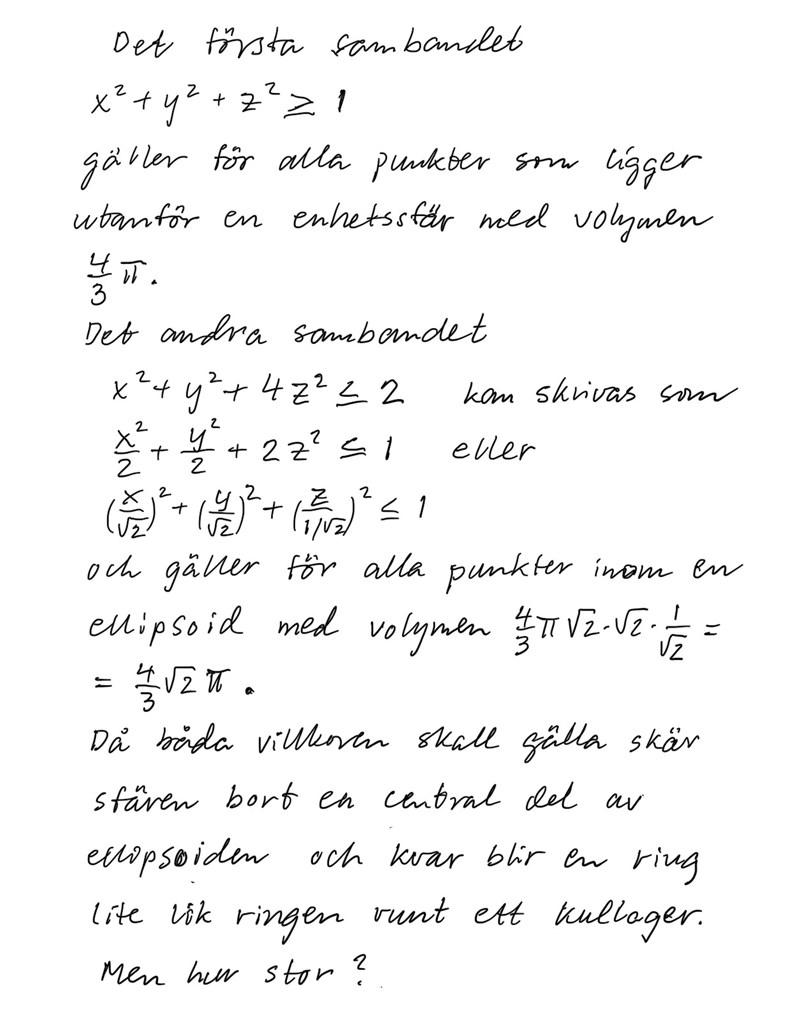 Det första sambandet
x² + y² + z² ≥ 1
gäller för alla punkter som ligger
utanför en enhetssfär med volymen
4/3 π.
Det andra sambandet
x² + y² + 4z² ≤ 2 kan skrivas som
x²/2 + y²/2 + 2z² ≤ 1 eller
(x/√2)² + (y/√2)² + (z/1/√2)² ≤ 1
och gäller för alla punkter inom en
ellipsoid med volymen 4/3 π √2·√2·1/√2 =
= 4/3 √2 π.
Då båda villkoren skall gälla skär
sfären bort en central del av
ellipsoiden och kvar blir en ring
lite lik ringen runt ett kullager.
Men hur stor?